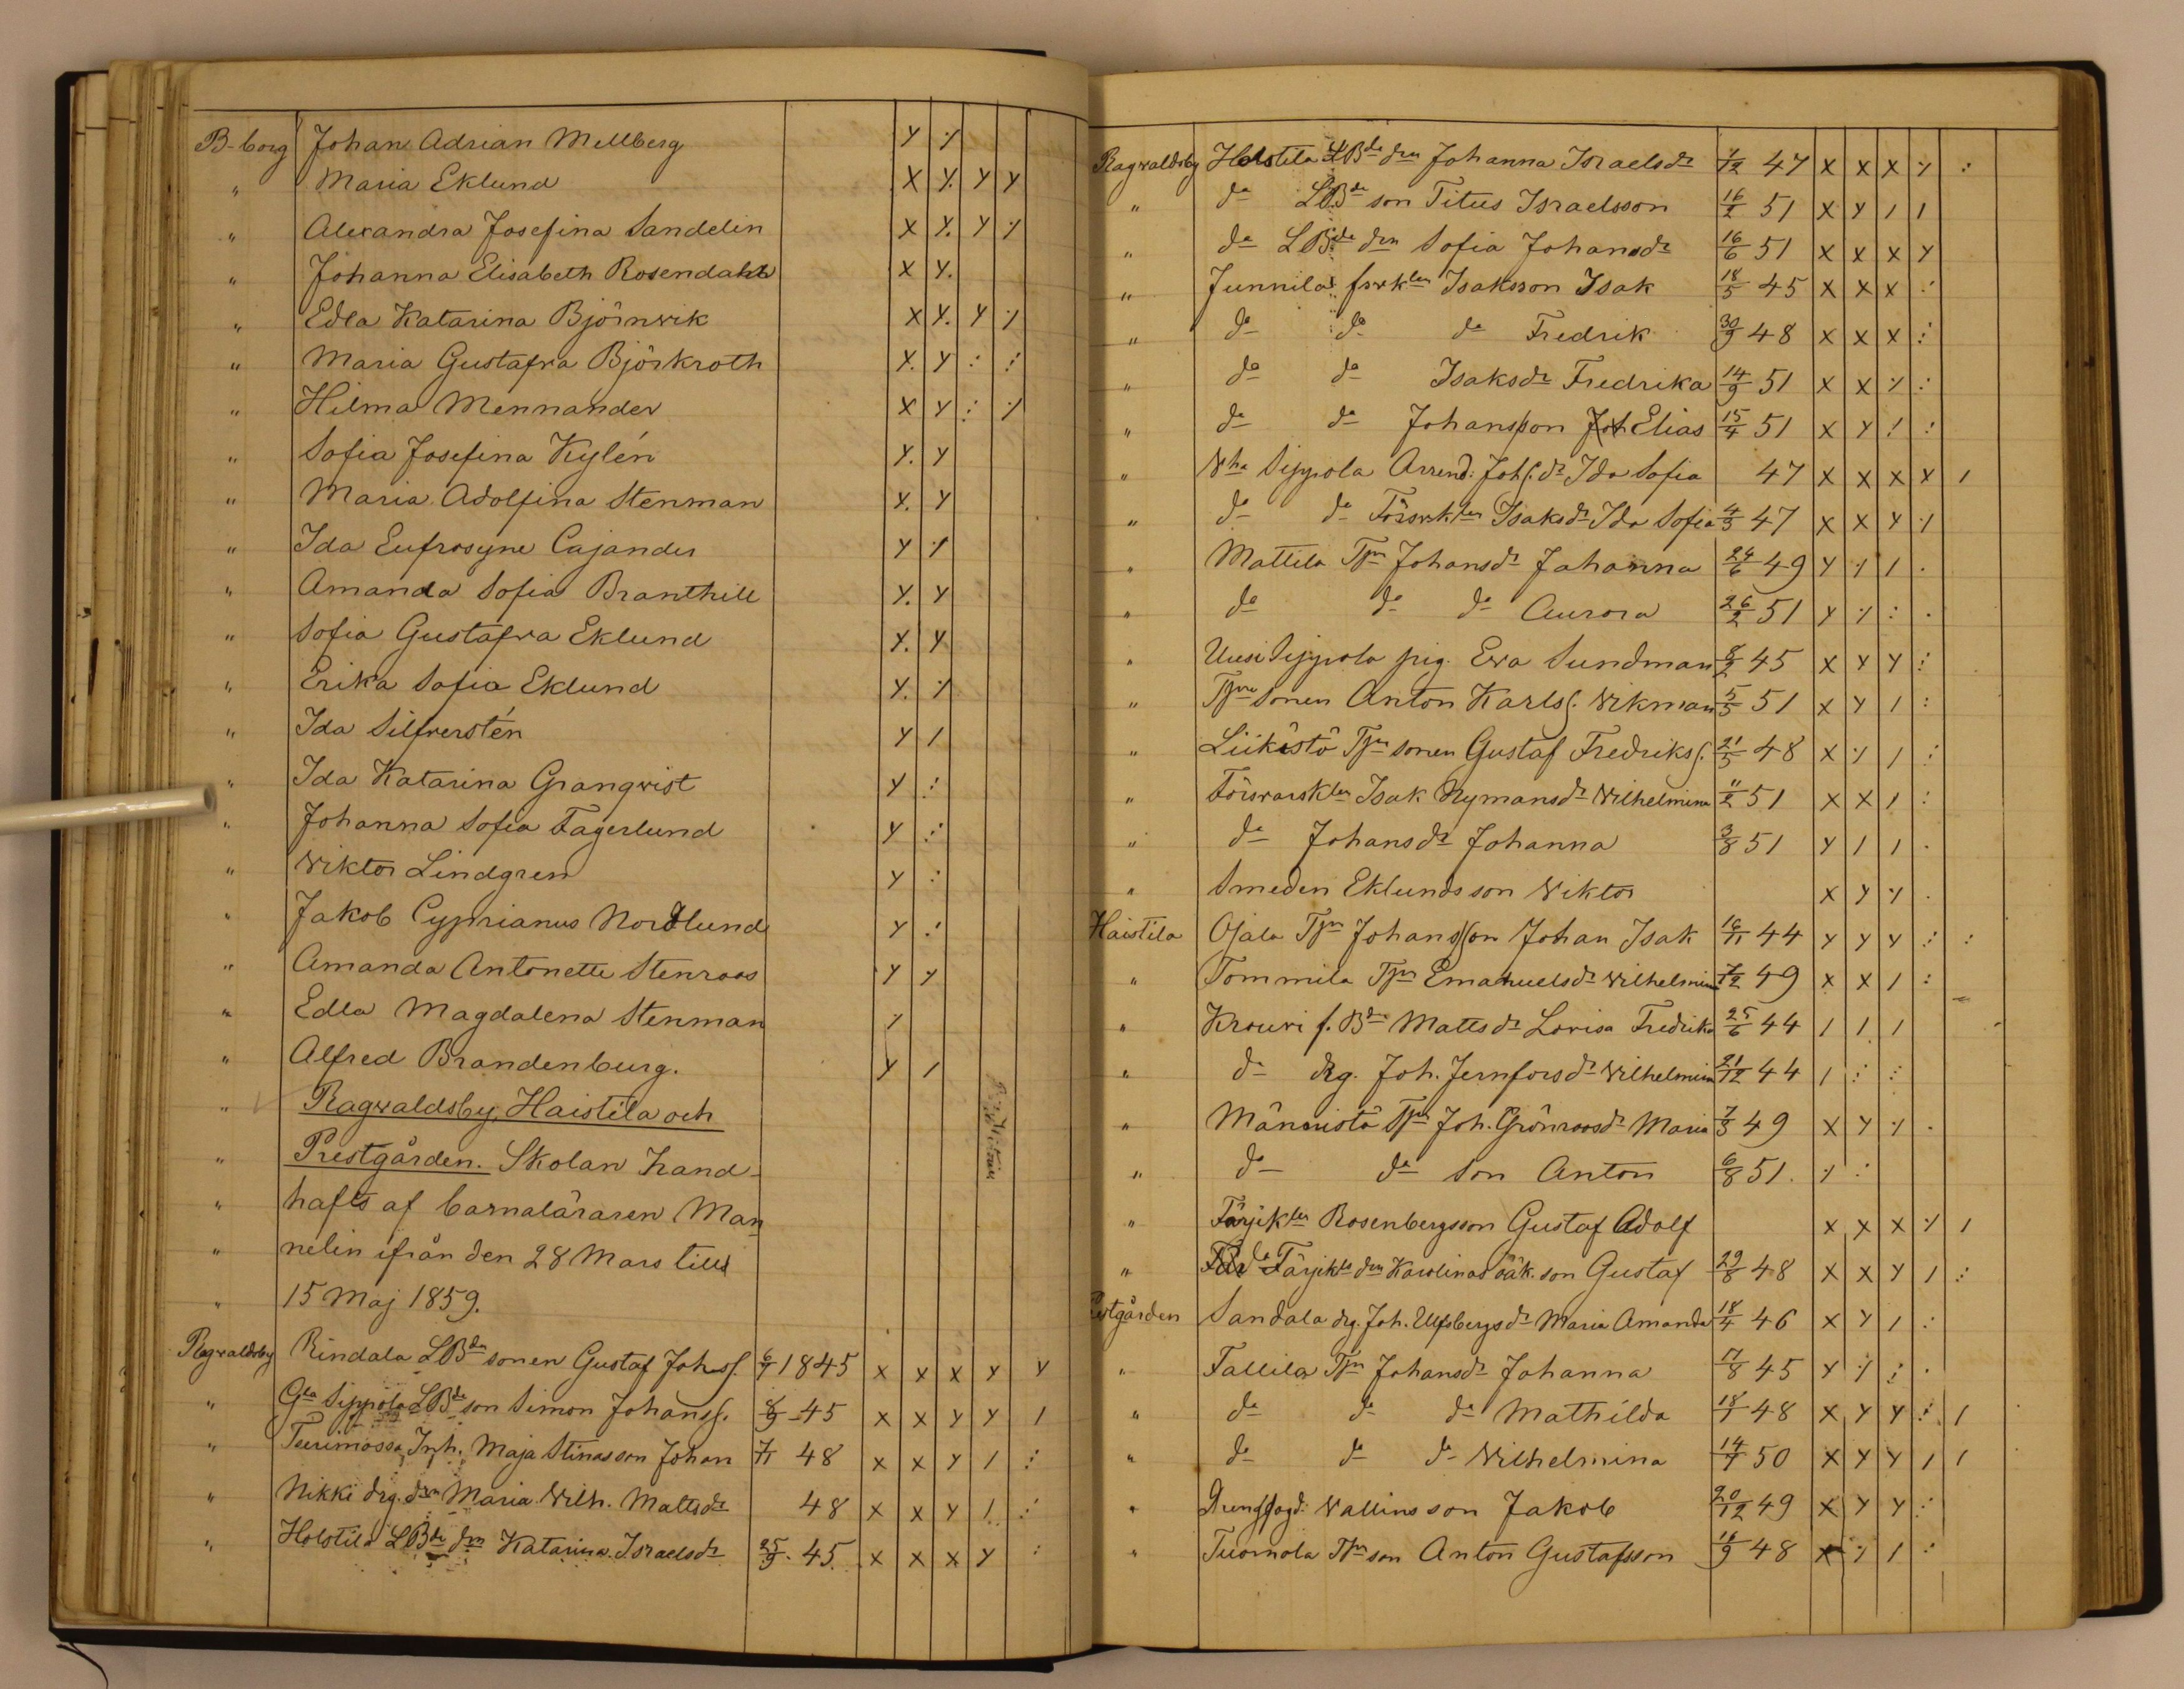 B-borg Johan Adrian Mellberg Y ⁒
" Maria Eklund X Y. Y Y
" Alexandra Josefina Sandelin X Y. Y ⁒
" Johanna Elisabeth Rosendahl X Y.
" Edla Katarina Björnvik X Y. Y ⁒
" Maria Gustafva Björkroth X. Y : :
" Hilma Mennander X Y : ⁒
" Sofia Josefina Kylén Y. Y
" Maria Adolfina Stenman Y. Y
" Ida Eufrosyne Cajander Y ⁒
" Amanda Sofia Branthill Y. Y
" Sofia Gustafva Eklund Y. Y
" Erika Sofia Eklund Y. ⁒
" Ida Silfverstén Y /
" Ida Katarina Granqvist Y :
" Johanna Sofia Fagerlund Y :
" Wiktor Lindgren Y :
" Jakob Cyprianus Nordlund Y :
" Amanda Antonette Stenroos Y Y
" Edla Magdalena Stenman ⁒
" Alfred Brandenburg. Y /
" Ragvaldsby, Haistila och
" Prestgården. Skolan hand-
" hafts af barnaläraren Man
" nelin ifrån den 28 Mars till
" 15 Maj 1859.
Ragvaldsby Rindala LBdn sonen Gustaf Johsſ. 6/7 1845 X X X Y Y
" Gla Sippola LBde son Simon Johansſ. 8/9 45 X X Y Y /
" Teerimossa Inh. Maja Stinas son Johan 7/11 48 X X Y / :
" Nikki drg. drn Maria Wilh. Mattsdr 48 X X Y / :
" Holstila LBde drn Katarina Israelsdr 25/9 45 X X X Y :
Ragvaldsby Holstila LBde drn Johanna Israelsdr 1/12 47 X X X ⁒ :
" do LBde son Titus Israelsson 16/2 51 X Y / /
" do LBde drn Sofia Johansdr 16/6 51 X X X Y
" Junnila fsvkln Isaksson Isak 18/5 45 X X X :
" do do do Fredrik 30/9 48 X X X :
" do do Isaksdr Fredrika 14/9 51 X X ⁒ :
" do do Johansson Elias 15/4 51 X Y / :
" Wha Sippola Arrend: Johſ. dr Ida Sofia 47 X X X X /
" do do Försvkln Isaksdr Ida Sofia 4/3 47 X X Y ⁒
" Mattila Tpr Johansdr Johanna 24/6 49 Y ⁒ / .
" do do do Aurora 26/2 51 Y ⁒ : .
" Uusi Sippola pig. Eva Sundman 8/2 45 X Y Y :
" Tprs sonen Anton Karlsſ. Wikman 5/5 51 X Y / :
" Liikistö Tpr sonen Gustaf Fredriksſ. 21/5 48 X ⁒ / :
" Försvarskln Isak Nymansdr Wilhelmina 11/2 51 X X / :
" do Johansdr Johanna 3/8 51 Y / / .
" Smeden Eklunds son Wiktor X Y ⁒ .
Haistila Ojala Tpr Johansson Johan Isak 16/11 44 Y Y Y : :
" Tommila Tpr Emanuelsdr Wilhelmin 7/12 49 X X / :
" Krouvi f. Bdn Mattsdr Lovisa Fredrika 25/6 44 / / /
" do drg. Joh. Jernforsdr Wilhelmin 21/12 44 / : :
" Männistö Tpr Joh. Grönroosdr Maria 7/3 49 X Y ⁒ .
" do do son Anton 6/8 51. ⁒ :
" Färjkln Rosenbergsson Gustaf Adolf X X X ⁒ /
" Färjkls drn Karolinas oäk. son Gustaf 29/8 48 X X Y / :
Prestgården Sandala drg. Joh. Ulfsbergs dr Maria Amanda 18/4 46 X Y / :
" Tallila Tpr Johansdr Johanna 17/8 45 Y ⁒ : .
" do do do Mathilda 18/1 48 X Y Y : /
" do do do Wilhelmina 14/4 50 X Y Y / /
" Drengfogd: Wallins son Jakob 20/12 49 X Y Y :
" Tuomola Tpr son Anton Gustafsson 16/9 48 X ⁒ / :